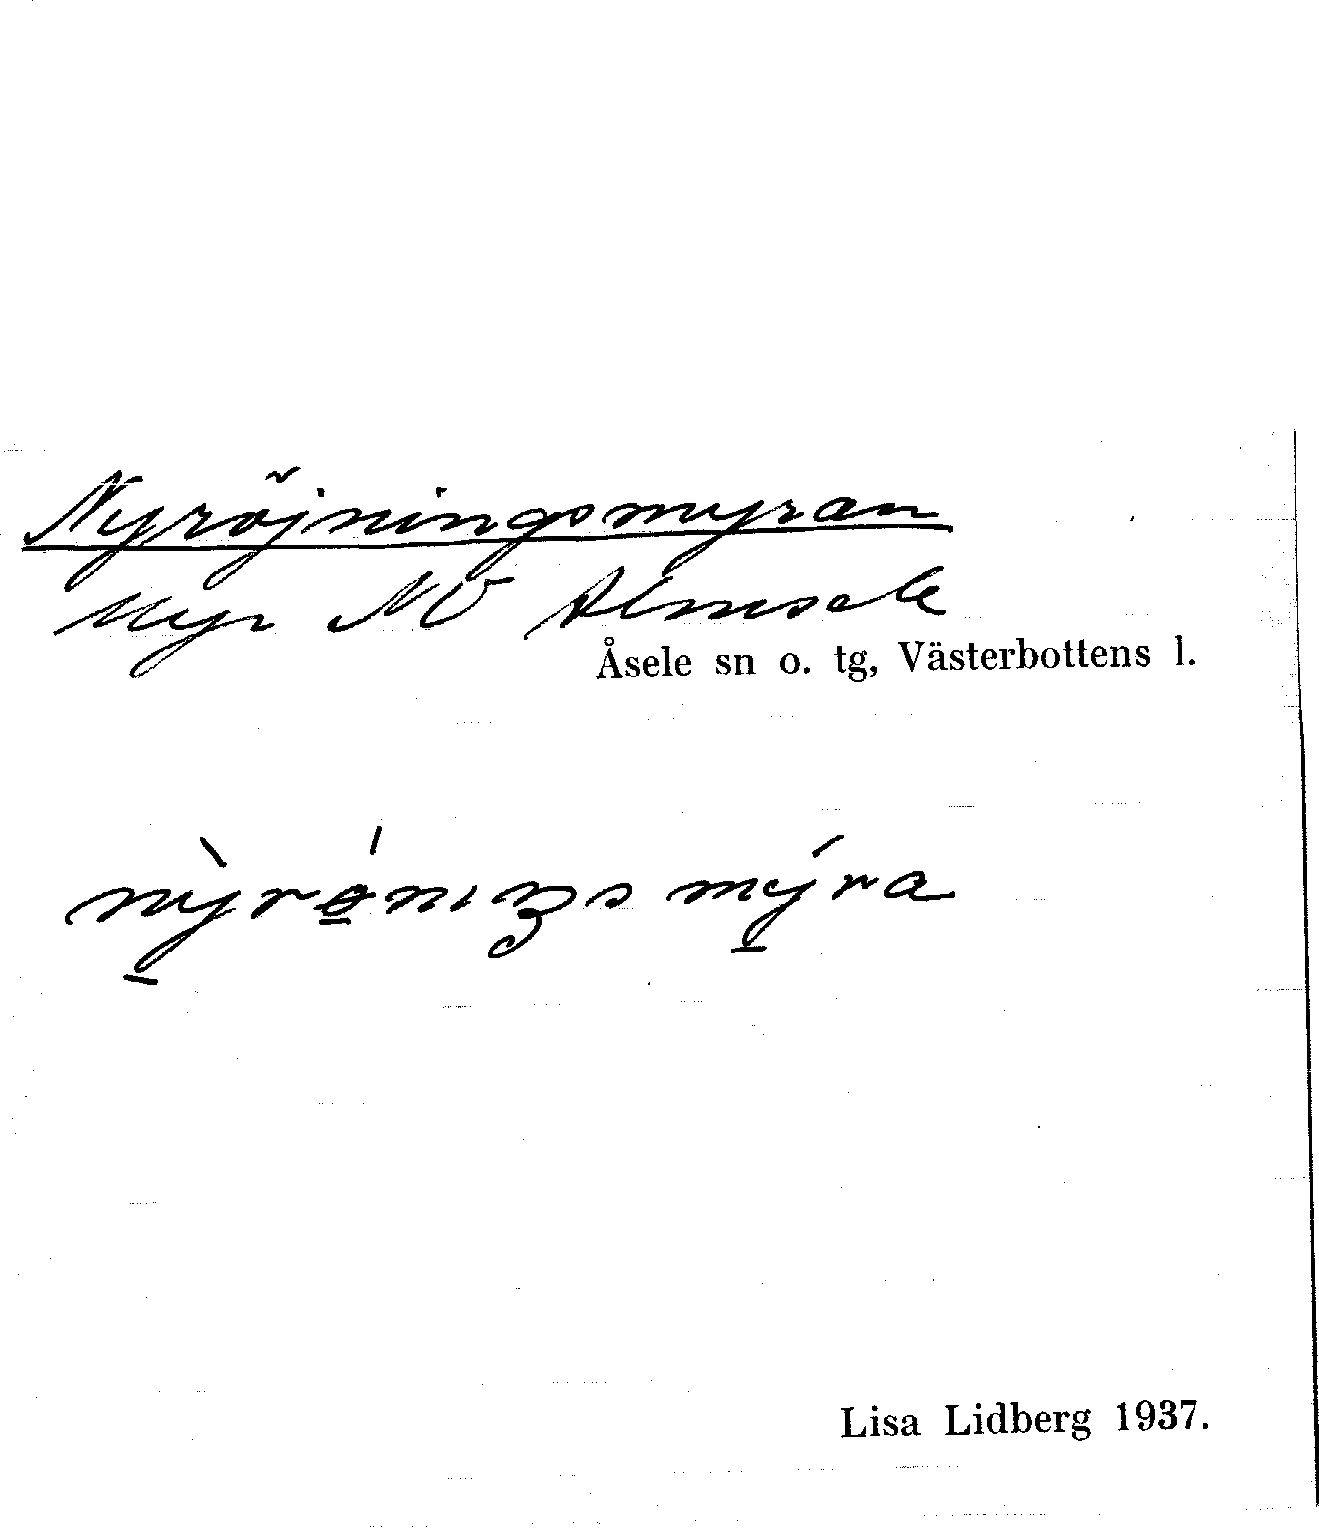 Nyröjningsmyran
Myr NV Almsele
Åsele sn o. tg, Västerbottens l.
nỳrǿnıŋs mýra
Lisa Lidberg 1937.